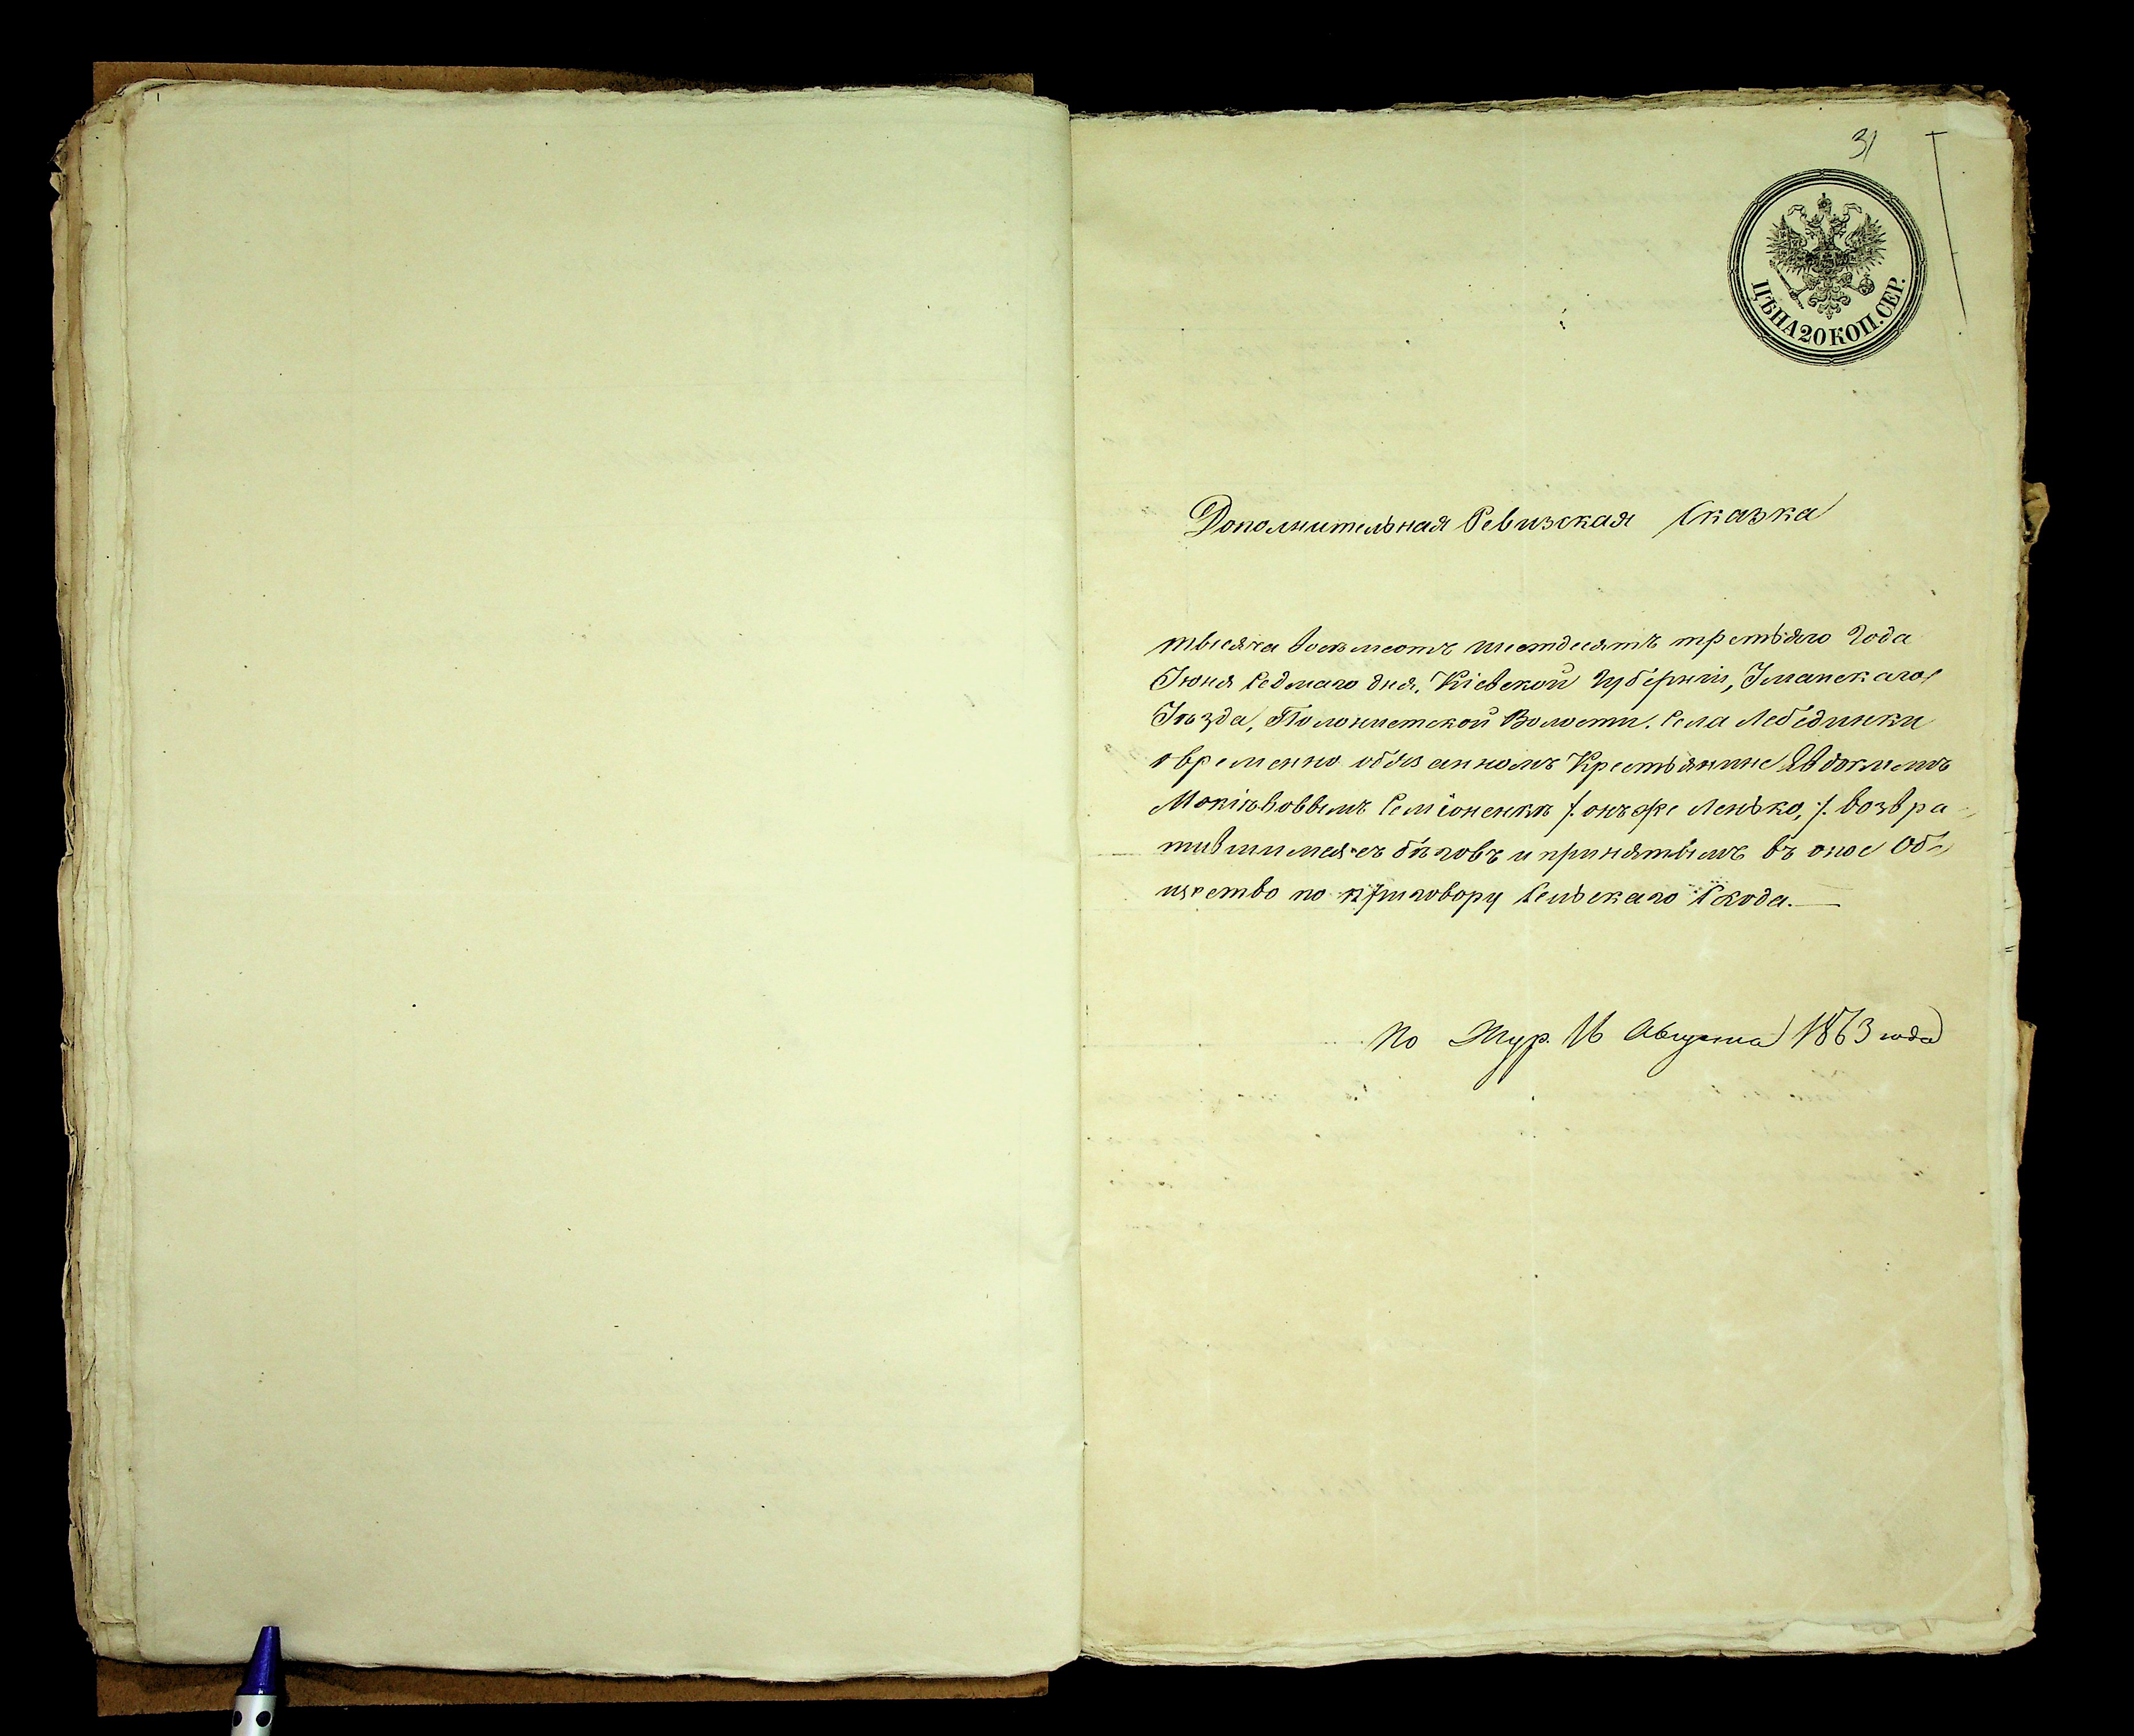 31
ЦѢНА 20 КОП. СЕР.
Дополнительная Ревизская Сказка
тысяча восемсотъ шестдесятъ третьяго Года
Іюня Седмаго дня, Кіевской Губерніи, Уманскаго
Уѣзда, Полонистской Волости, Села Лебединки
о временно обязанномъ Крестьянине Евдокимъ
Мокіѣвовымъ Семіоненкѣ /. онъ же Ленько, ./ возвра-
тившимся съ бѣговъ и принятымъ въ оное Об-
щество по приговору Сельскаго Схода.—
По Жур. 16 Августа 1863 года